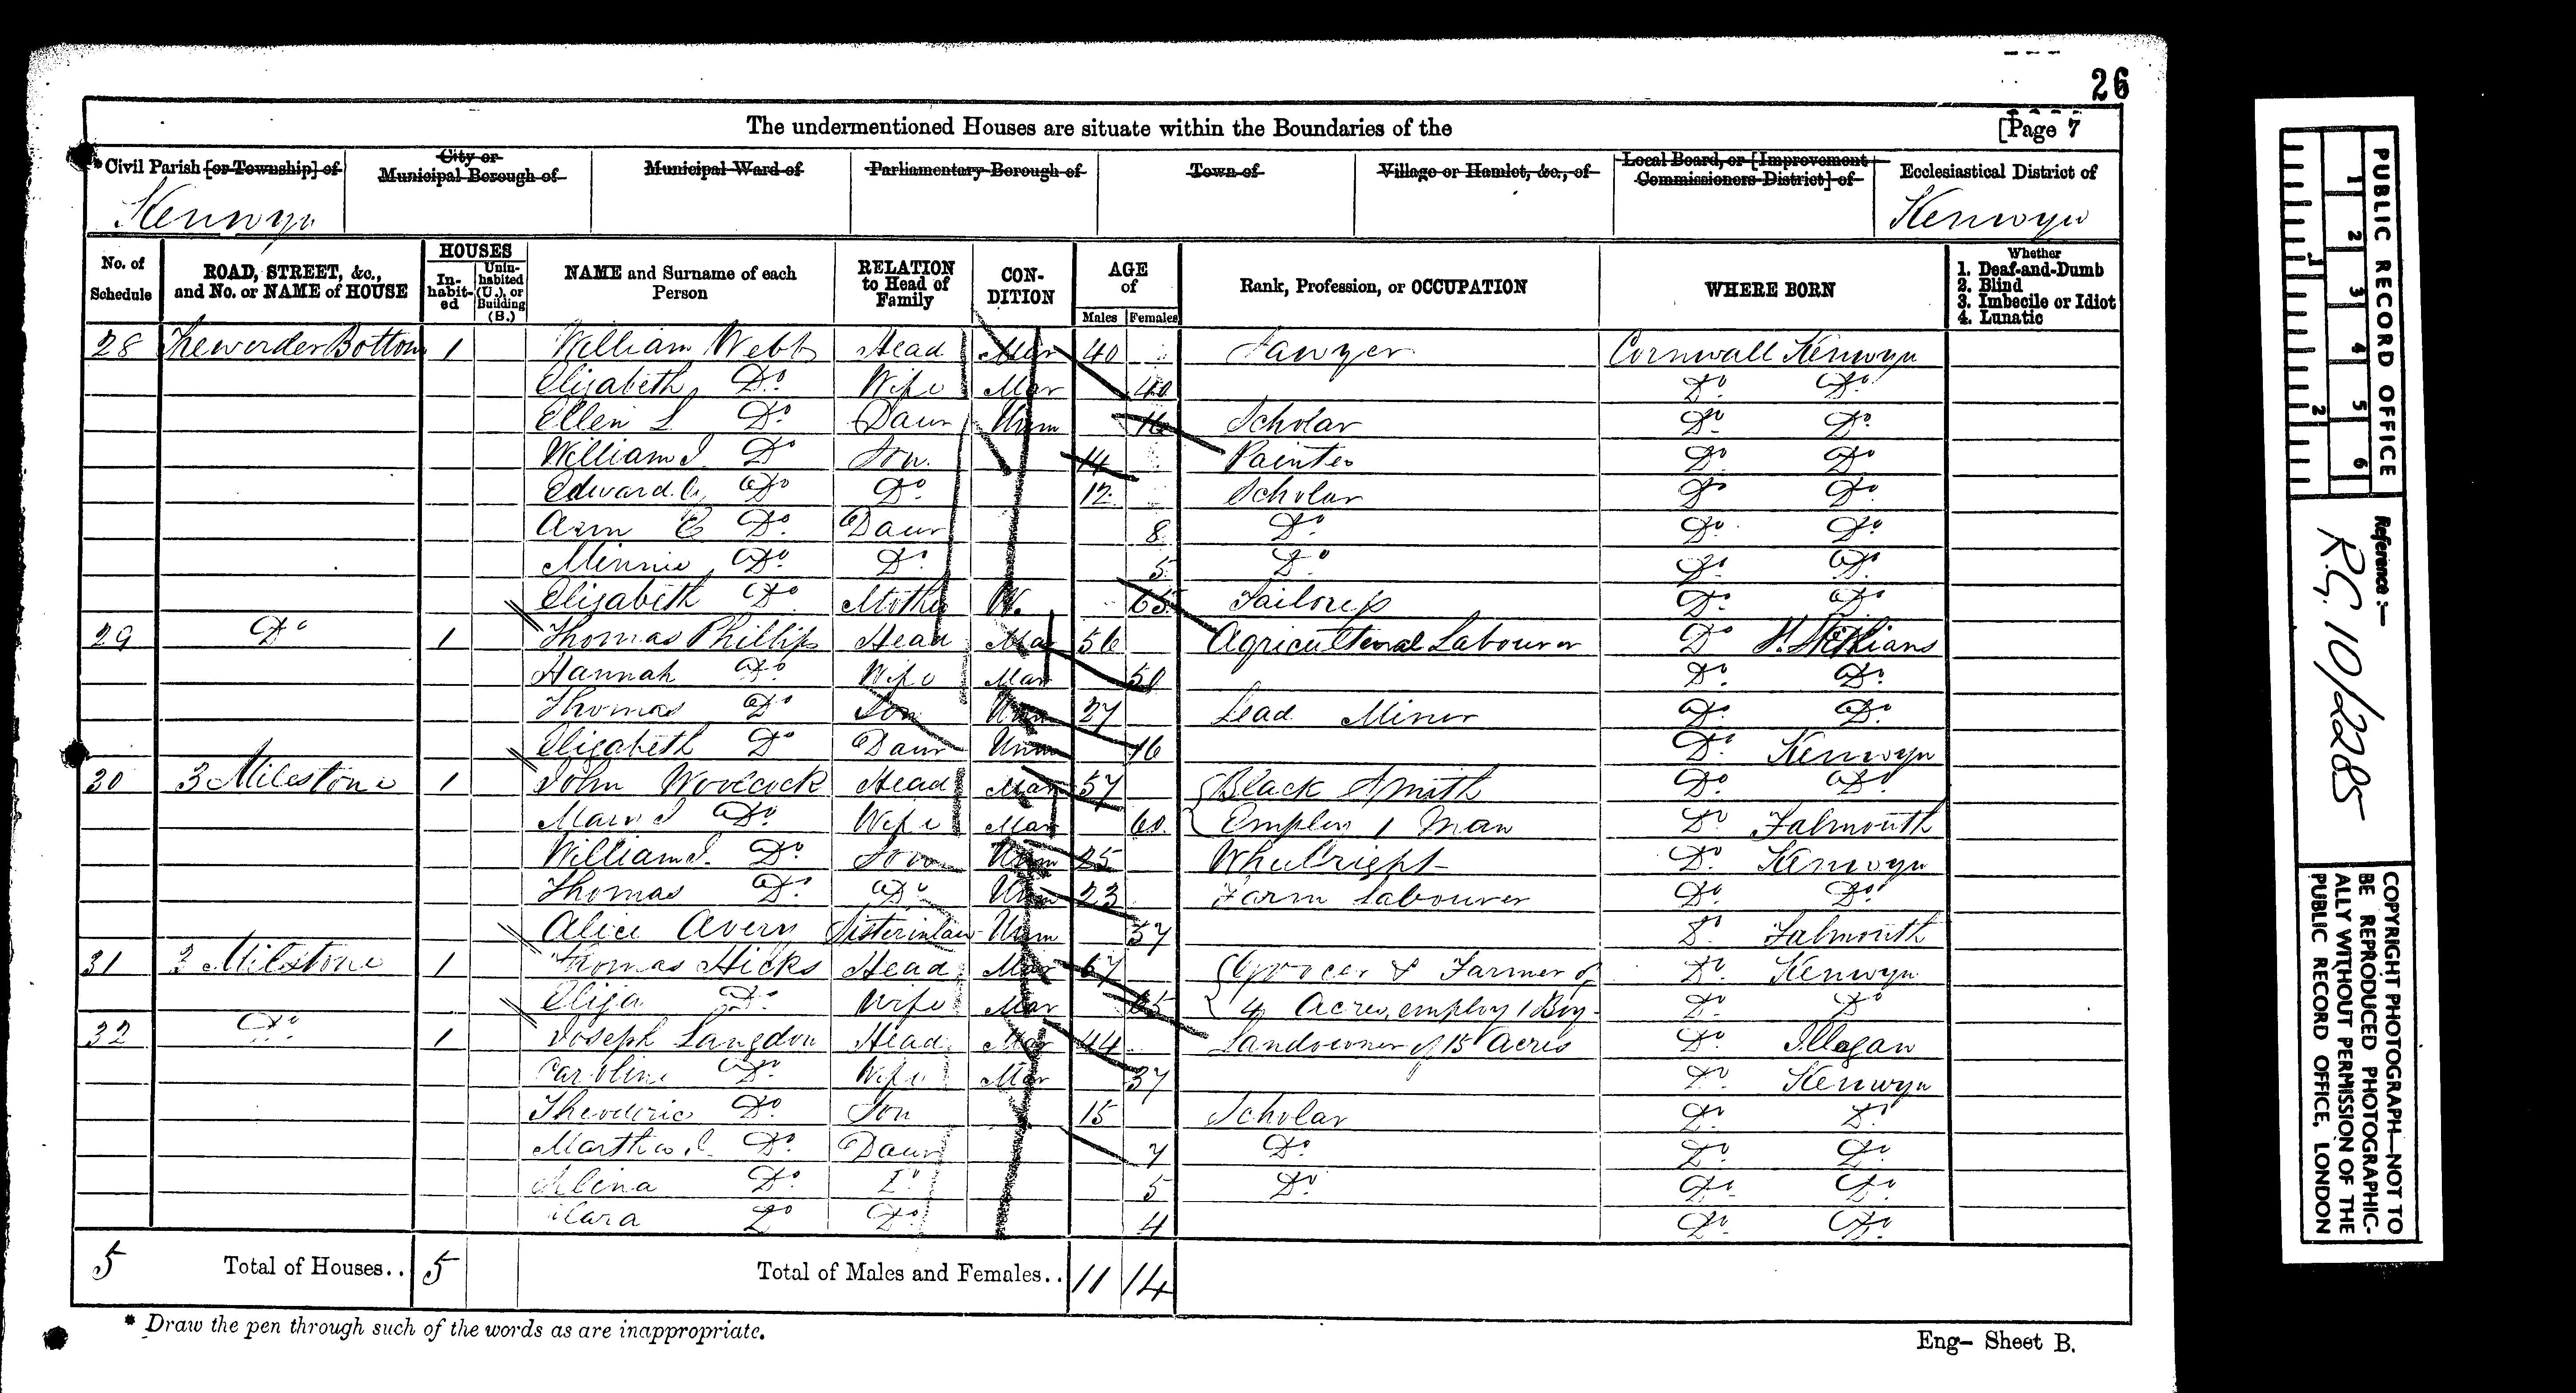 26
The undermentioned Houses are situate within the Boundaries of the [Page 7
*Civil Parish [or Township] of City or Municipal Borough of Municipal Ward of Parliamentary Borough of Town of Village or Hamlet, &c., of Local Board, or [Improvement Commissioners District] of Ecclesiastical District of
Kenwyn Kenwyn
No. of Schedule ROAD, STREET, &c., and No. or NAME of HOUSE HOUSES In-habit-ed Unin-habited (U.), or Building (B.) NAME and Surname of each Person RELATION to Head of Family CON-DITION AGE of Males Females Rank, Profession, or OCCUPATION WHERE BORN Whether 1. Deaf-and-Dumb 2. Blind 3. Imbecile or Idiot 4. Lunatic
28 Bottom 1 William Webb Head Mar 40 Sawyer Cornwall Kenwyn
Elizabeth Do Wife Mar 40 Do Do
Ellen L Do Daur Unm 16 Scholar Do Do
William J. Do Son 14 Painter Do Do
Edward Do Do 12 Scholar Do Do
Ann E Do Daur 8 Do Do Do
Minnie Do Do 5 Do Do Do
Elizabeth Do Mother W. 65 Tailoress Do Do
29 Do 1 Thomas Phillips Head Mar 56 Agricultural Labourer Do St. Stithians
Hannah Do Wife Mar Do Do
Thomas Do Son Unm 27 Lead Miner Do Do
Elizabeth Do Daur Unm 16 Do Kenwyn
30 3 Milestone 1 John Woolcock Head Mar 57 Black Smith Do Do
Mary J Do Wife Mar 60 Employ 1 Man Do Falmouth
William J. Do Son Unm 25 Whelright Do Kenwyn
Thomas Do Do Unm 23 Farm Labourer Do Do
Alice Avery Sisterinlaw Unm 57 Do Falmouth
31 3 Milestone 1 Thomas Hicks Head Mar 67 Grocer & Farmer of Do Kenwyn
Eliza Do Wife Mar 65 4 Acres, employ 1 Boy Do Do
32 Do 1 Joseph Langdon Head Mar 44 Landowner of 15 Acres Do Illogan
Caroline Do Wife Mar 37 Do Kenwyn
Theoderic Do Son 15 Scholar Do Do
Martha Do Daur 7 Do Do Do
Do Do 5 Do Do Do
Clara Do Do 4 Do Do
5 Total of Houses.. 5 Total of Males and Females.. 11 14
* Draw the pen through such of the words as are inappropriate.
Eng– Sheet B.
PUBLIC RECORD OFFICE
1 2 3 4 5 6
1 2
Reference:—
R.G. 10/2285
COPYRIGHT PHOTOGRAPH—NOT TO
BE REPRODUCED PHOTOGRAPHIC-
ALLY WITHOUT PERMISSION OF THE
PUBLIC RECORD OFFICE, LONDON